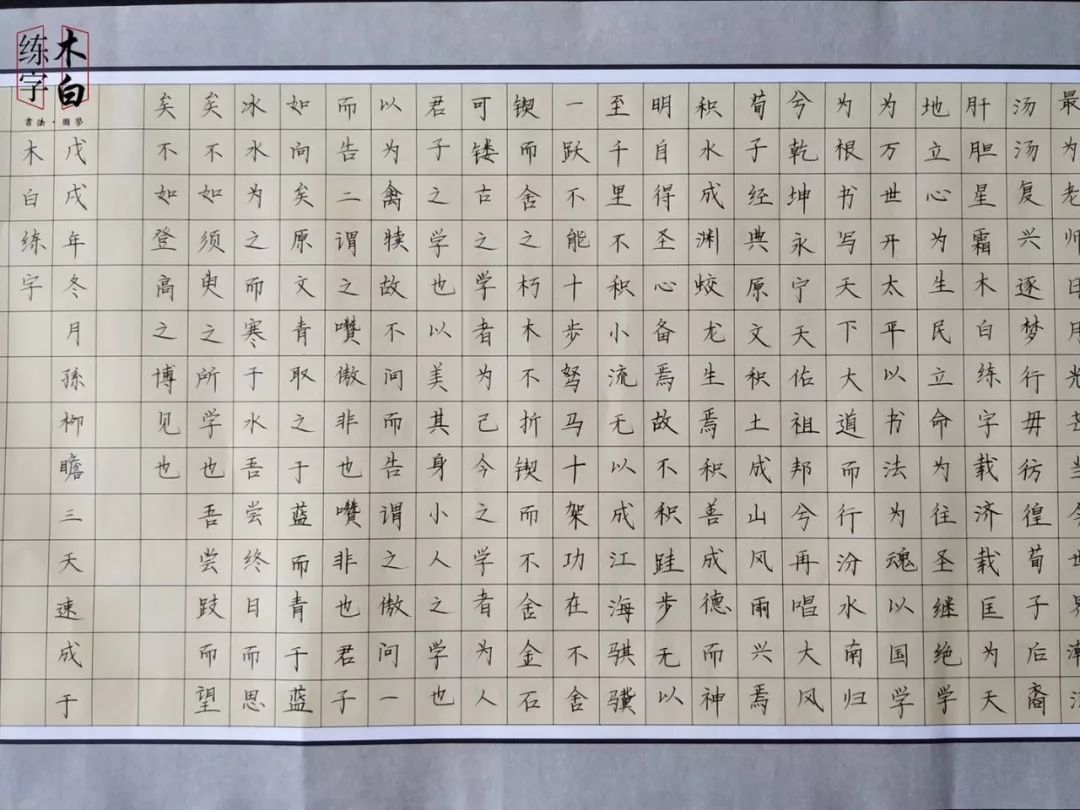 最为老师日月光芒当今世界潮
汤汤复兴逐梦行毋彷徨荀子后裔
肝胆星霜木白练字载济载匡为天
地立心为生民立命为往圣继绝学
为万世开太平以书法为魂以国学
为根书写天下大道而行汾水南归
兮乾坤永宁天佑祖邦兮再唱大风
荀子经典原文积土成山风雨兴焉
积水成渊蛟龙生焉积善成德而神
明自得圣心备焉故不积跬步无以
至千里不积小流无以成江海骐骥
一跃不能十步驽马十架功在不舍
锲而舍之朽木不折锲而不舍金石
可镂古之学者为己今之学者为人
君子之学也以美其身小人之学也
以为禽犊故不问而告谓之傲问一
而告二谓之囋傲非也囋非也君子
如向矣原文青取之于蓝而青于蓝
冰水为之而寒于水吾尝终日而思
矣不如须臾之所学也吾尝跂而望
矣不如登高之博见也
戊戌年冬月孫柳瞻三天速成于
木白练字
木白
练字
書法·國學